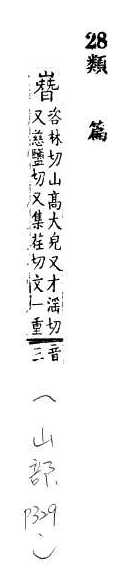 28類　篇
嶜
咨林切山高大皃又才滛切
又慈鹽切又集荏切文一重
音
三
（山部 p329）